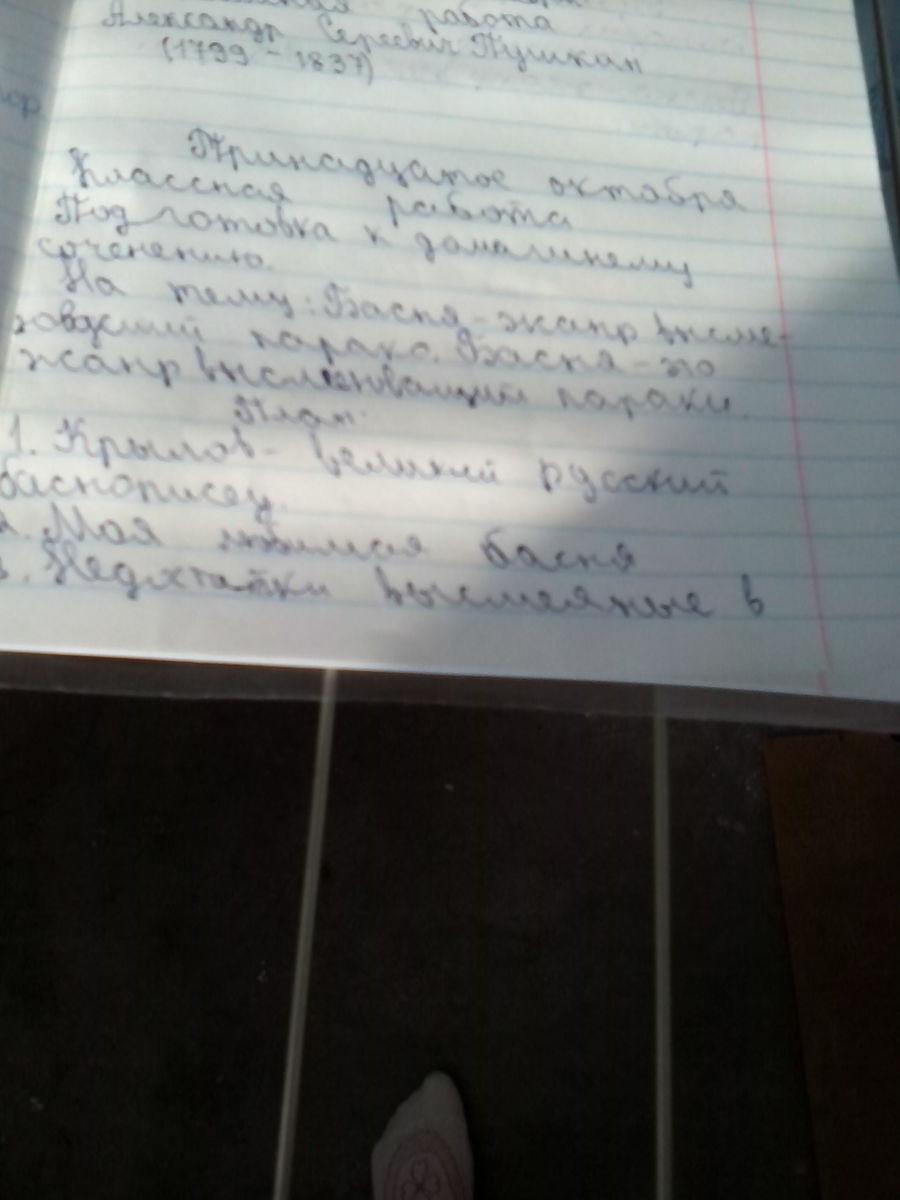 работа
Александр Сергеевич Пушкин
(1799-1837)
Тринадцатое октября
Классная работа
Подготовка к домашнему
соченению.
На тему: Басня-жанр высме-
пароки. Басня-это
жанр высмеивающий пароки.
План:
1. Крылов- великий русский
баснописец.
2. Моя любимая басня
3. Недостатки высмеяные в